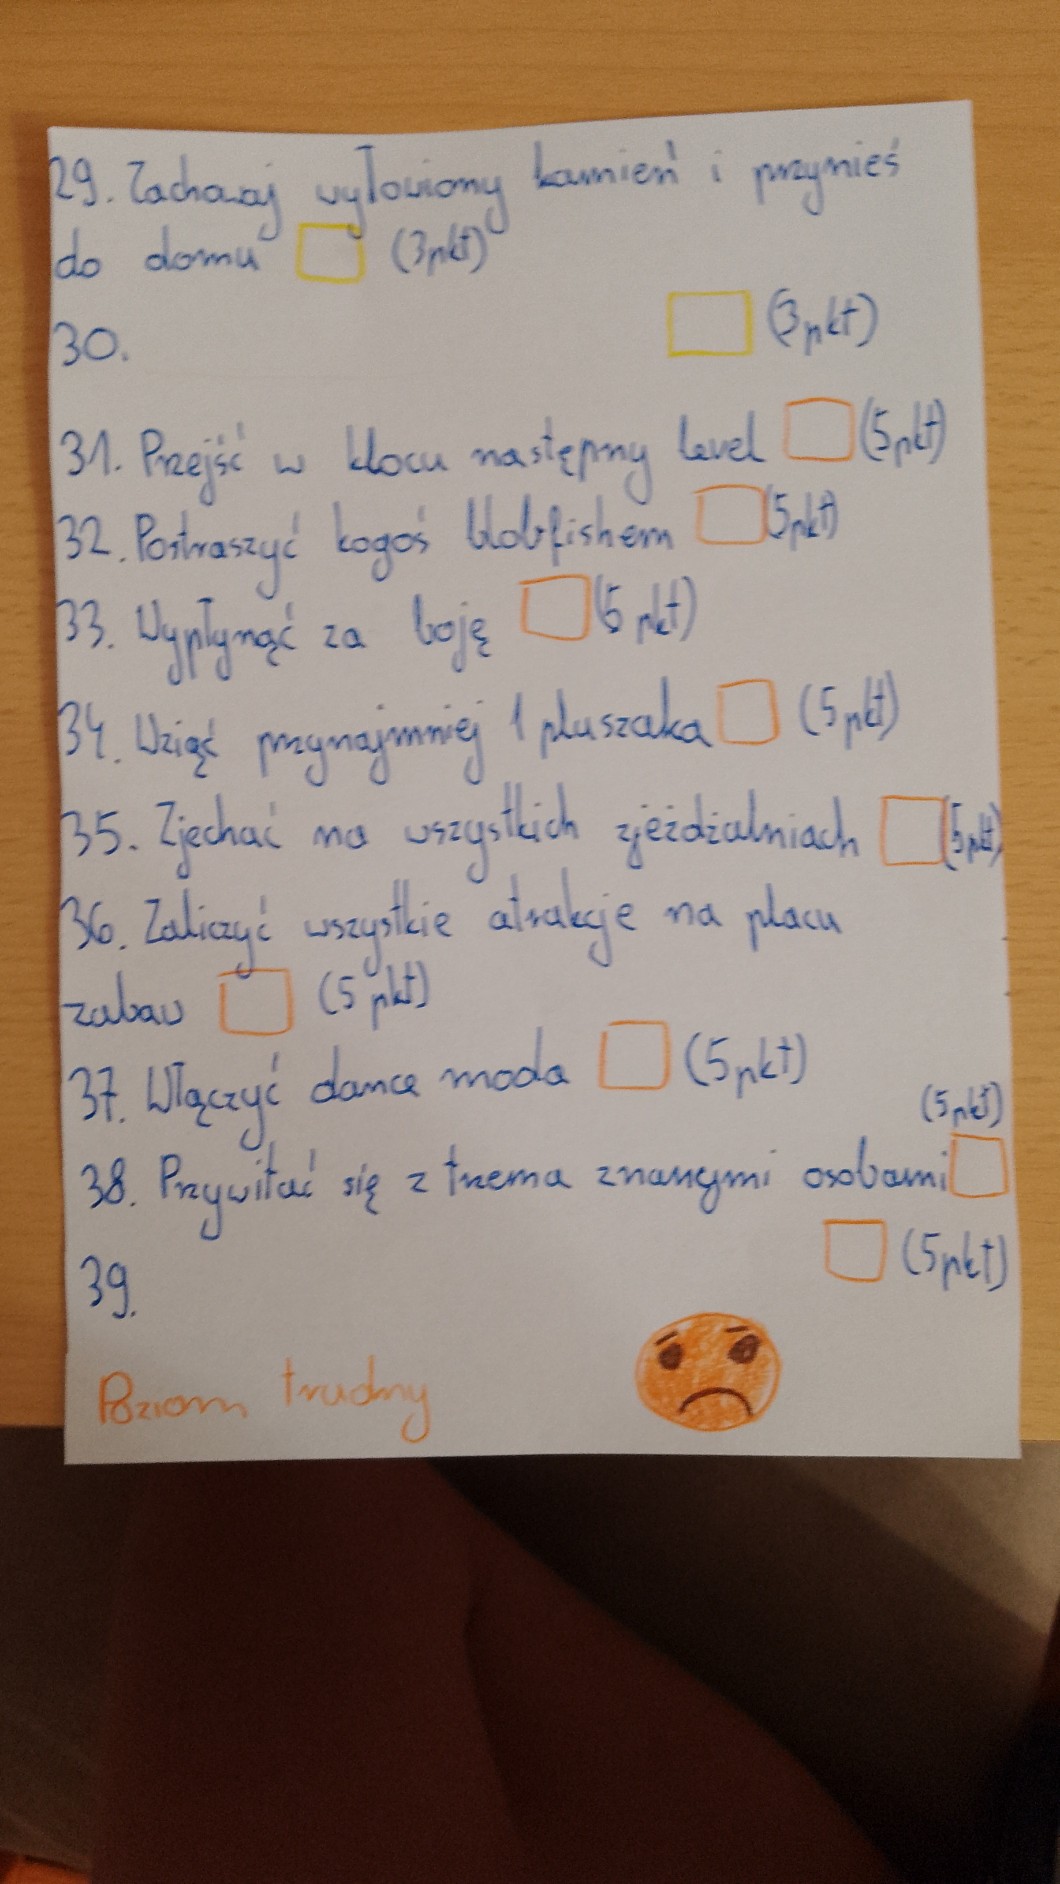 29. Zachowaj wyłowiony kamień i przynieś
do domu (3pkt)
30. (3pkt)
31. Przejść w klocu następny level (5pkt)
32. Postraszyć kogoś blobfishem (5pkt)
33. Wypłynąć za boję (5 pkt)
34. Wziąć przynajmniej 1 pluszaka (5pkt)
35. Zjechać na wszystkich zjeżdżalniach (5pkt)
36. Zaliczyć wszystkie atrakcje na placu
zabaw (5 pkt)
37. Włączyć dance moda (5pkt)
(5pkt)
38. Przywitać się z trzema znanymi osobami
39. (5pkt)
Poziom trudny